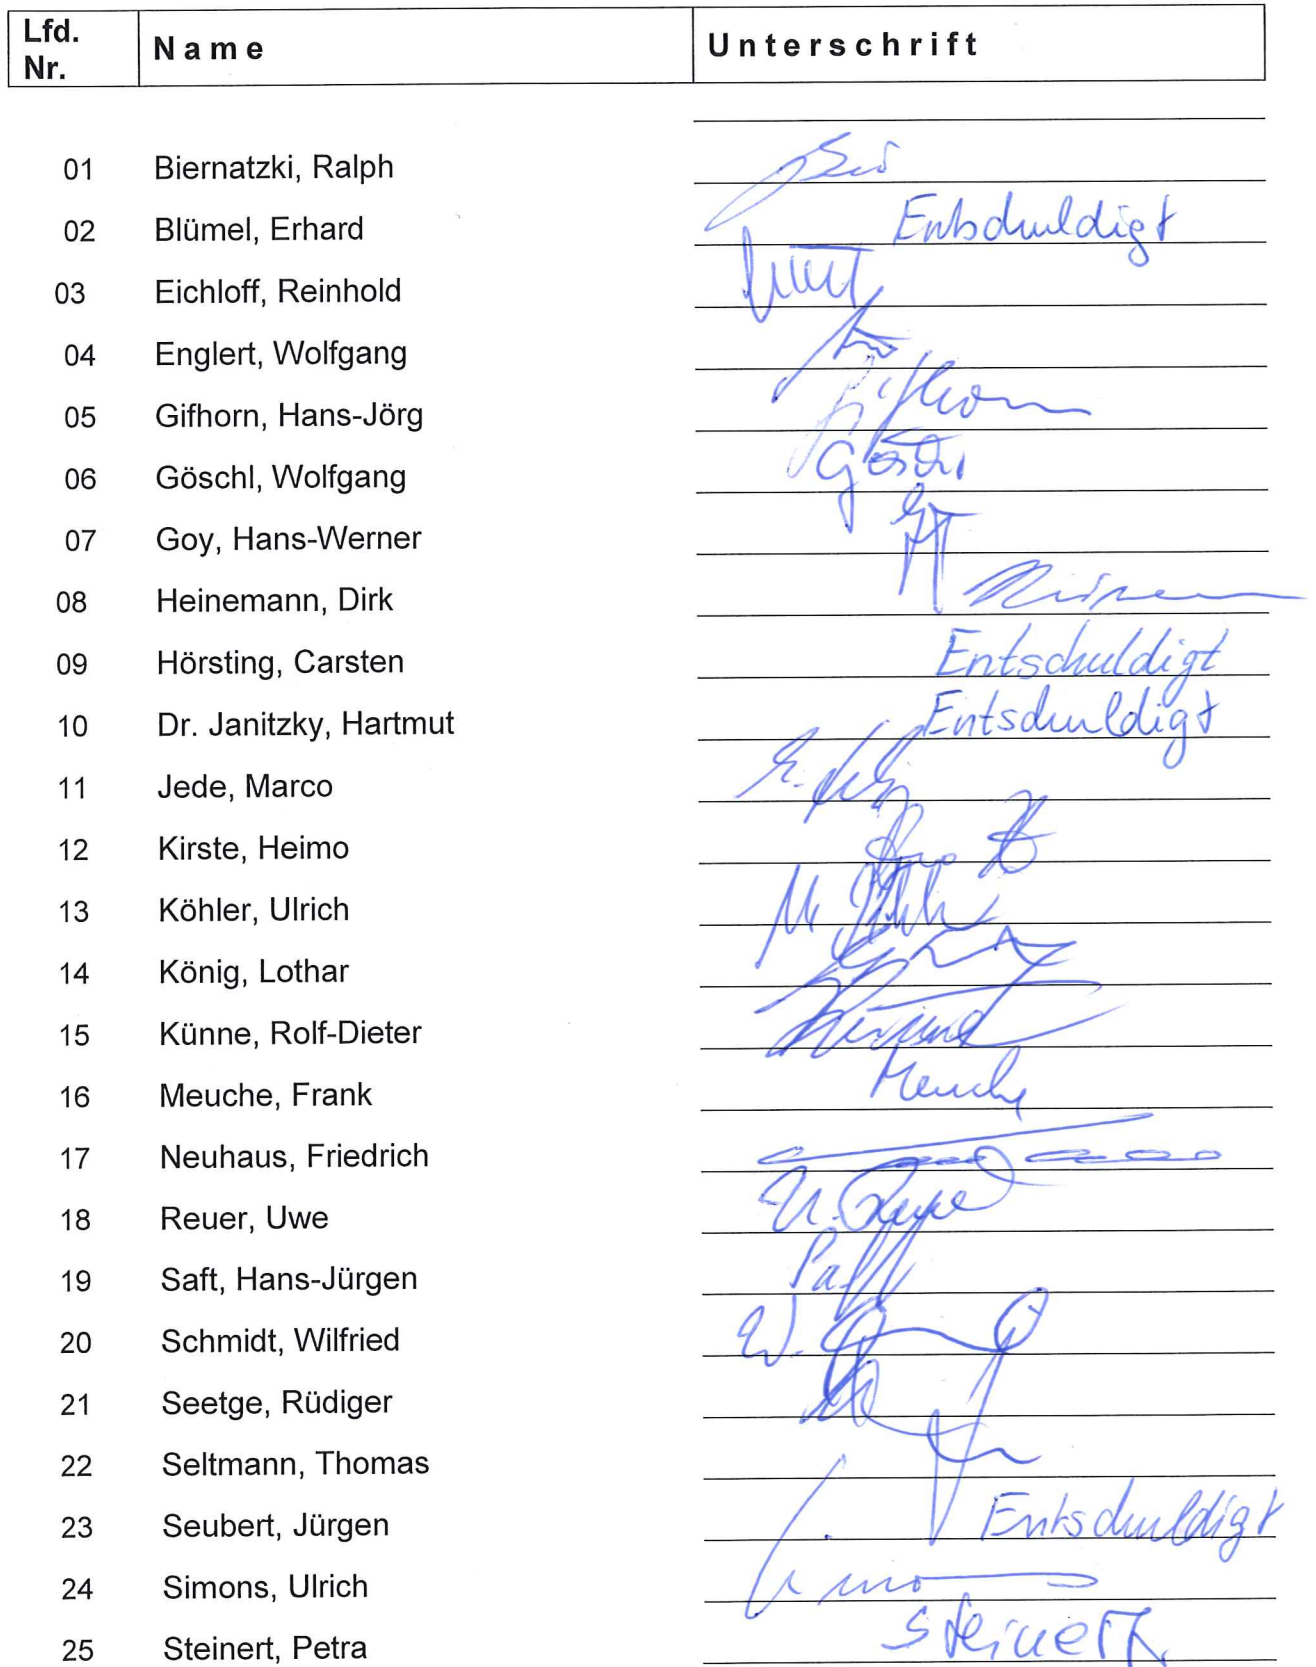 Lfd. Nr. Name Unterschrift
01 Biernatzki, Ralph
02 Blümel, Erhard Entschuldigt
03 Eichloff, Reinhold
04 Englert, Wolfgang
05 Gifhorn, Hans-Jörg Gifhorn
06 Göschl, Wolfgang Göschl
07 Goy, Hans-Werner
08 Heinemann, Dirk
09 Hörsting, Carsten Entschuldigt
10 Dr. Janitzky, Hartmut Entschuldigt
11 Jede, Marco
12 Kirste, Heimo
13 Köhler, Ulrich
14 König, Lothar
15 Künne, Rolf-Dieter
16 Meuche, Frank Meuche
17 Neuhaus, Friedrich
18 Reuer, Uwe
19 Saft, Hans-Jürgen
20 Schmidt, Wilfried
21 Seetge, Rüdiger
22 Seltmann, Thomas
23 Seubert, Jürgen Entschuldigt
24 Simons, Ulrich
25 Steinert, Petra Steinert